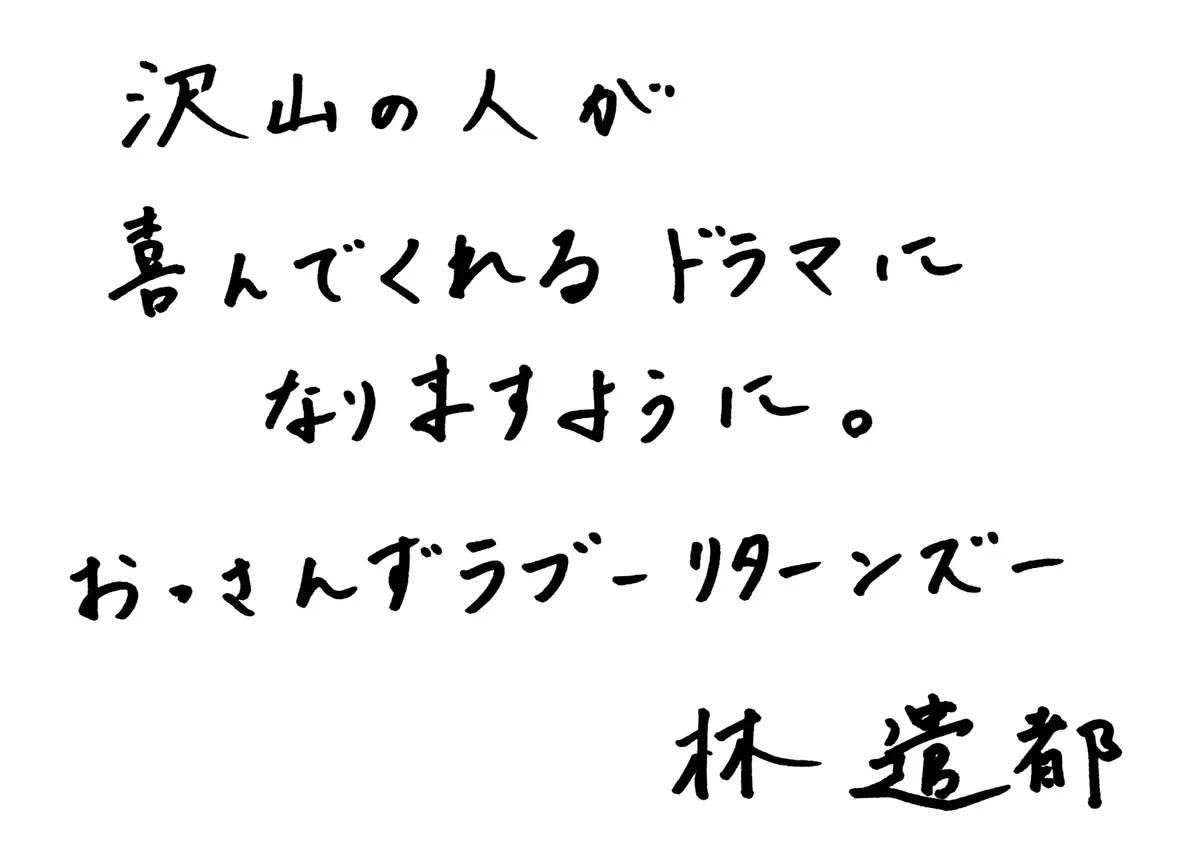 沢山の人が
喜んでくれるドラマに
なりますように。
おっさんずラブーリターンズー
林遣都